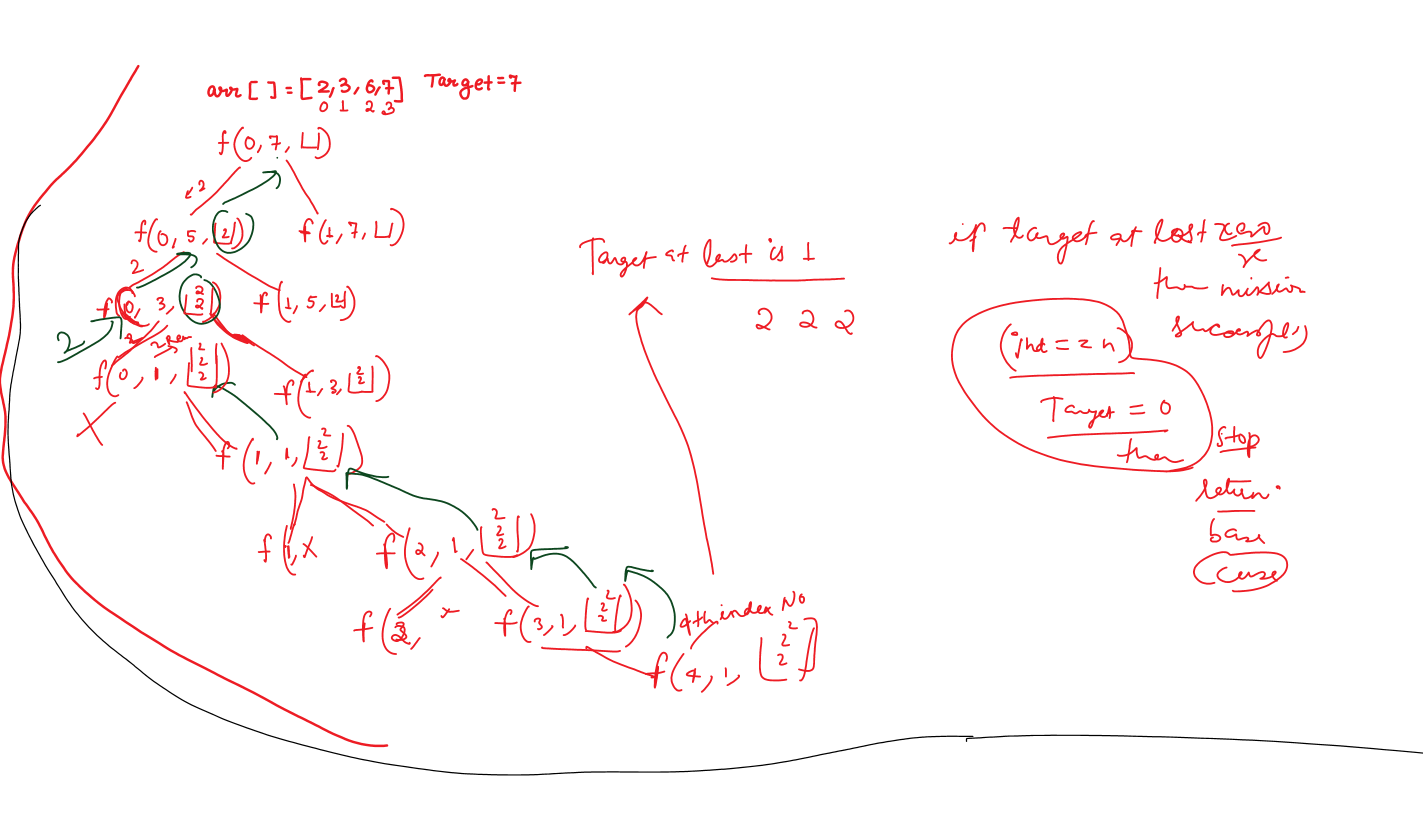 arr [ ] = [ 2, 3, 6, 7 ] Target = 7
0 1 2 3
f(0, 7, ⌊⌋)
2
f(0, 5, [2])
f(1, 7, ⌊⌋)
2
f(0, 3, [2 2])
f(1, 5, [2])
2
2
f(0, 1, [2 2 2])
f(1, 3, [2 2])
X
f(1, 1, [2 2 2])
f(1, X
f(2, 1, [2 2 2])
f(3,
x
f(3, 1, [2 2 2])
4th index No
f(4, 1, [2 2 2])
Target at last is 1
2 2 2
if target at lost zero
then mission
successful
(ind = = n)
Target = 0
then
stop
return
base
case